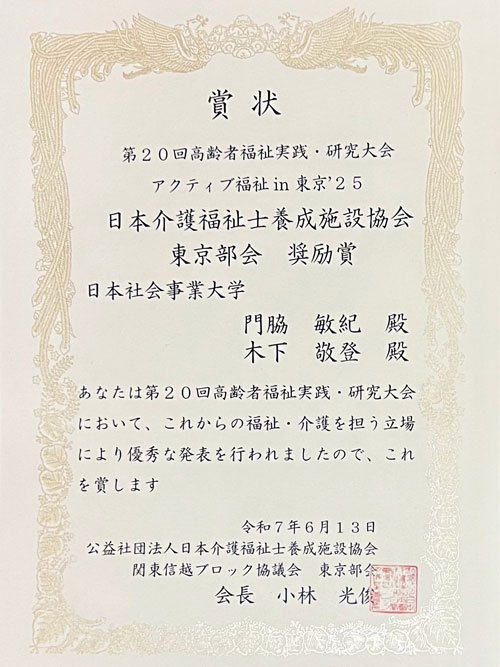 賞状
第20回高齢者福祉実践・研究大会
アクティブ福祉in東京'25
日本介護福祉士養成施設協会
東京部会 奨励賞
日本社会事業大学
門脇 敏紀 殿
木下 敬登 殿
あなたは第20回高齢者福祉実践・研究大会
において、これからの福祉・介護を担う立場
により優秀な発表を行われましたので、これ
を賞します
令和7年6月13日
公益社団法人日本介護福祉士養成施設協会
関東信越ブロック協議会 東京部会
会長 小林 光俊